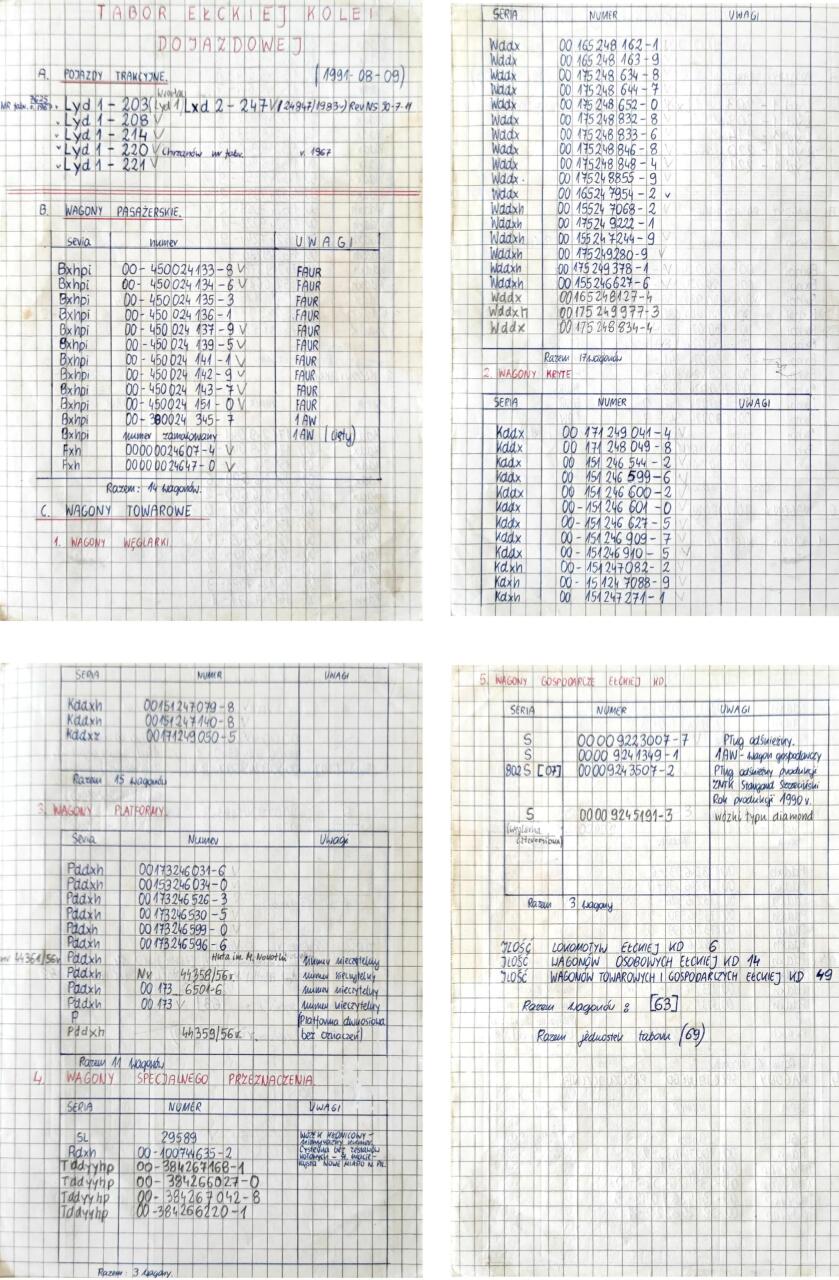 TABOR EŁCKIEJ KOLEI
DOJAZDOWEJ
A. POJAZDY TRAKCYJNE. (1991-08-09)
Lyd 1 - 203 (Lyd 1) Lxd 2 - 247 V (24847/1983) Rev NS 30-7-91
Lyd 1 - 208 V
Lyd 1 - 214 V
Lyd 1 - 220 V Chrzanów nr fabr. r. 1967
Lyd 1 - 221 V
B. WAGONY PASAŻERSKIE.
seria numer UWAGI
Bxhpi 00-450024133-8 V FAUR
Bxhpi 00-450024 134-6 V FAUR
Bxhpi 00-450024 135-3 FAUR
Bxhpi 00-450024 136-1 FAUR
Bxhpi 00-450 024 137-9 V FAUR
Bxhpi 00-450 024 139-5 V FAUR
Bxhpi 00-450024 141-1 V FAUR
Bxhpi 00-450024 142-9 V FAUR
Bxhpi 00-450024 143-7 V FAUR
Bxhpi 00-450024 151-0 V FAUR
Bxhpi 00-380024 345-7 1AW
Bxhpi numer zamalowany 1AW (żółty)
Fxh 0000024607-4 V
Fxh 0000024647-0 V
Razem: 14 wagonów.
C. WAGONY TOWAROWE
1. WAGONY WĘGLARKI.
SERIA NUMER UWAGI
Wddx 00 165 248 162-1
Wddx 00 165 248 163-9
Wddx 00 175 248 634-8
Wddx 00 175 248 644-7
Wddx 00 175 248 652-0
Wddx 00 175 248 832-8
Wddx 00 175 248 833-6
Wddx 00 175 248 846-8
Wddx 00 175 248 848-4
Wddx 00 175248855-9
Wddx 00 165247954-2 v
Wddxh 00 15524 7068-2
Wddxh 00 17524 9222-1
Wddxh 00 155 247244-9
Wddxh 00 175249280-9
Wddxh 00 175 249378-1
Wddxh 00 155246627-6
Wddx 00165248127-4
Wddxh 00175 249977-3
Wddx 00 175 248 834-4
Razem 17 wagonów
2. WAGONY KRYTE
SERIA NUMER UWAGI
Kddx 00 171 249 041-4
Kddx 00 171 248 049-8
Kddx 00 151 246 544-2
Kddx 00 151 246 599-6
Kddx 00 151 246 600-2
Kddx 00-151 246 601-0
Kddx 00-151 246 627-5
Kddx 00-151 246 909-7
Kddx 00-151246910-5
Kdxh 00-151247082-2
Kdxh 00-15 124 7088-9
Kdxh 00 151247271-1
SERIA NUMER UWAGI
Kddxh 00151247079-8
Kddxh 00151247140-8
Kddxz 00171249050-5
Razem 15 wagonów
3. WAGONY PLATFORMY.
Seria Numer Uwagi
Pddxh 00173246031-6
Pddxh 00153246034-0
Pddxh 00173246526-3
Pddxh 00 173246530-5
Pddxh 00173246599-0
Pddxh 00 173246596-6
nr 44361/56r. Pddxh Huta im. M. Nowotki numer nieczytelny
Pddxh Nr 44358/56r. numer nieczytelny
Pddxh 00 173 6501-6 numer nieczytelny
Pddxh 00 173 numer nieczytelny
P (Platforma dwuosiowa
Pddxh 44359/56r. bez oznaczeń)
Razem 11 wagonów
4. WAGONY SPECJALNEGO PRZEZNACZENIA.
SERIA NUMER UWAGI
SL 29589 WÓZEK KŁONICOWY -
Rdxh 00-100744635-2 Cysterna bez zestawów
Tddyyhp 00-384267168-1 NOWE MIASTO N. PIL.
Tddyyhp 00-384266027-0
Tddyyhp 00-384267042-8
Tddyyhp 00-384266220-1
Razem: 3 wagony.
5. WAGONY GOSPODARCZE EŁCKIEJ KD.
SERIA NUMER UWAGI
S 00009223007-7 Pług odśnieżny.
S 0000 9241349-1 1AW-wagon gospodarczy
802S [07] 00009243507-2 Pług odśnieżny produkcji
ZNTK Stargard Szczeciński
Rok produkcji 1990 r.
S 0000 9245191-3 wózki typu diamond
(węglarka
czteroosiowa)
Razem 3 wagony
ILOŚĆ LOKOMOTYW EŁCKIEJ KD 6
ILOŚĆ WAGONÓW OSOBOWYCH EŁCKIEJ KD 14
ILOŚĆ WAGONÓW TOWAROWYCH I GOSPODARCZYCH EŁCKIEJ KD 49
Razem wagonów: [63]
Razem jednostek taboru (69)